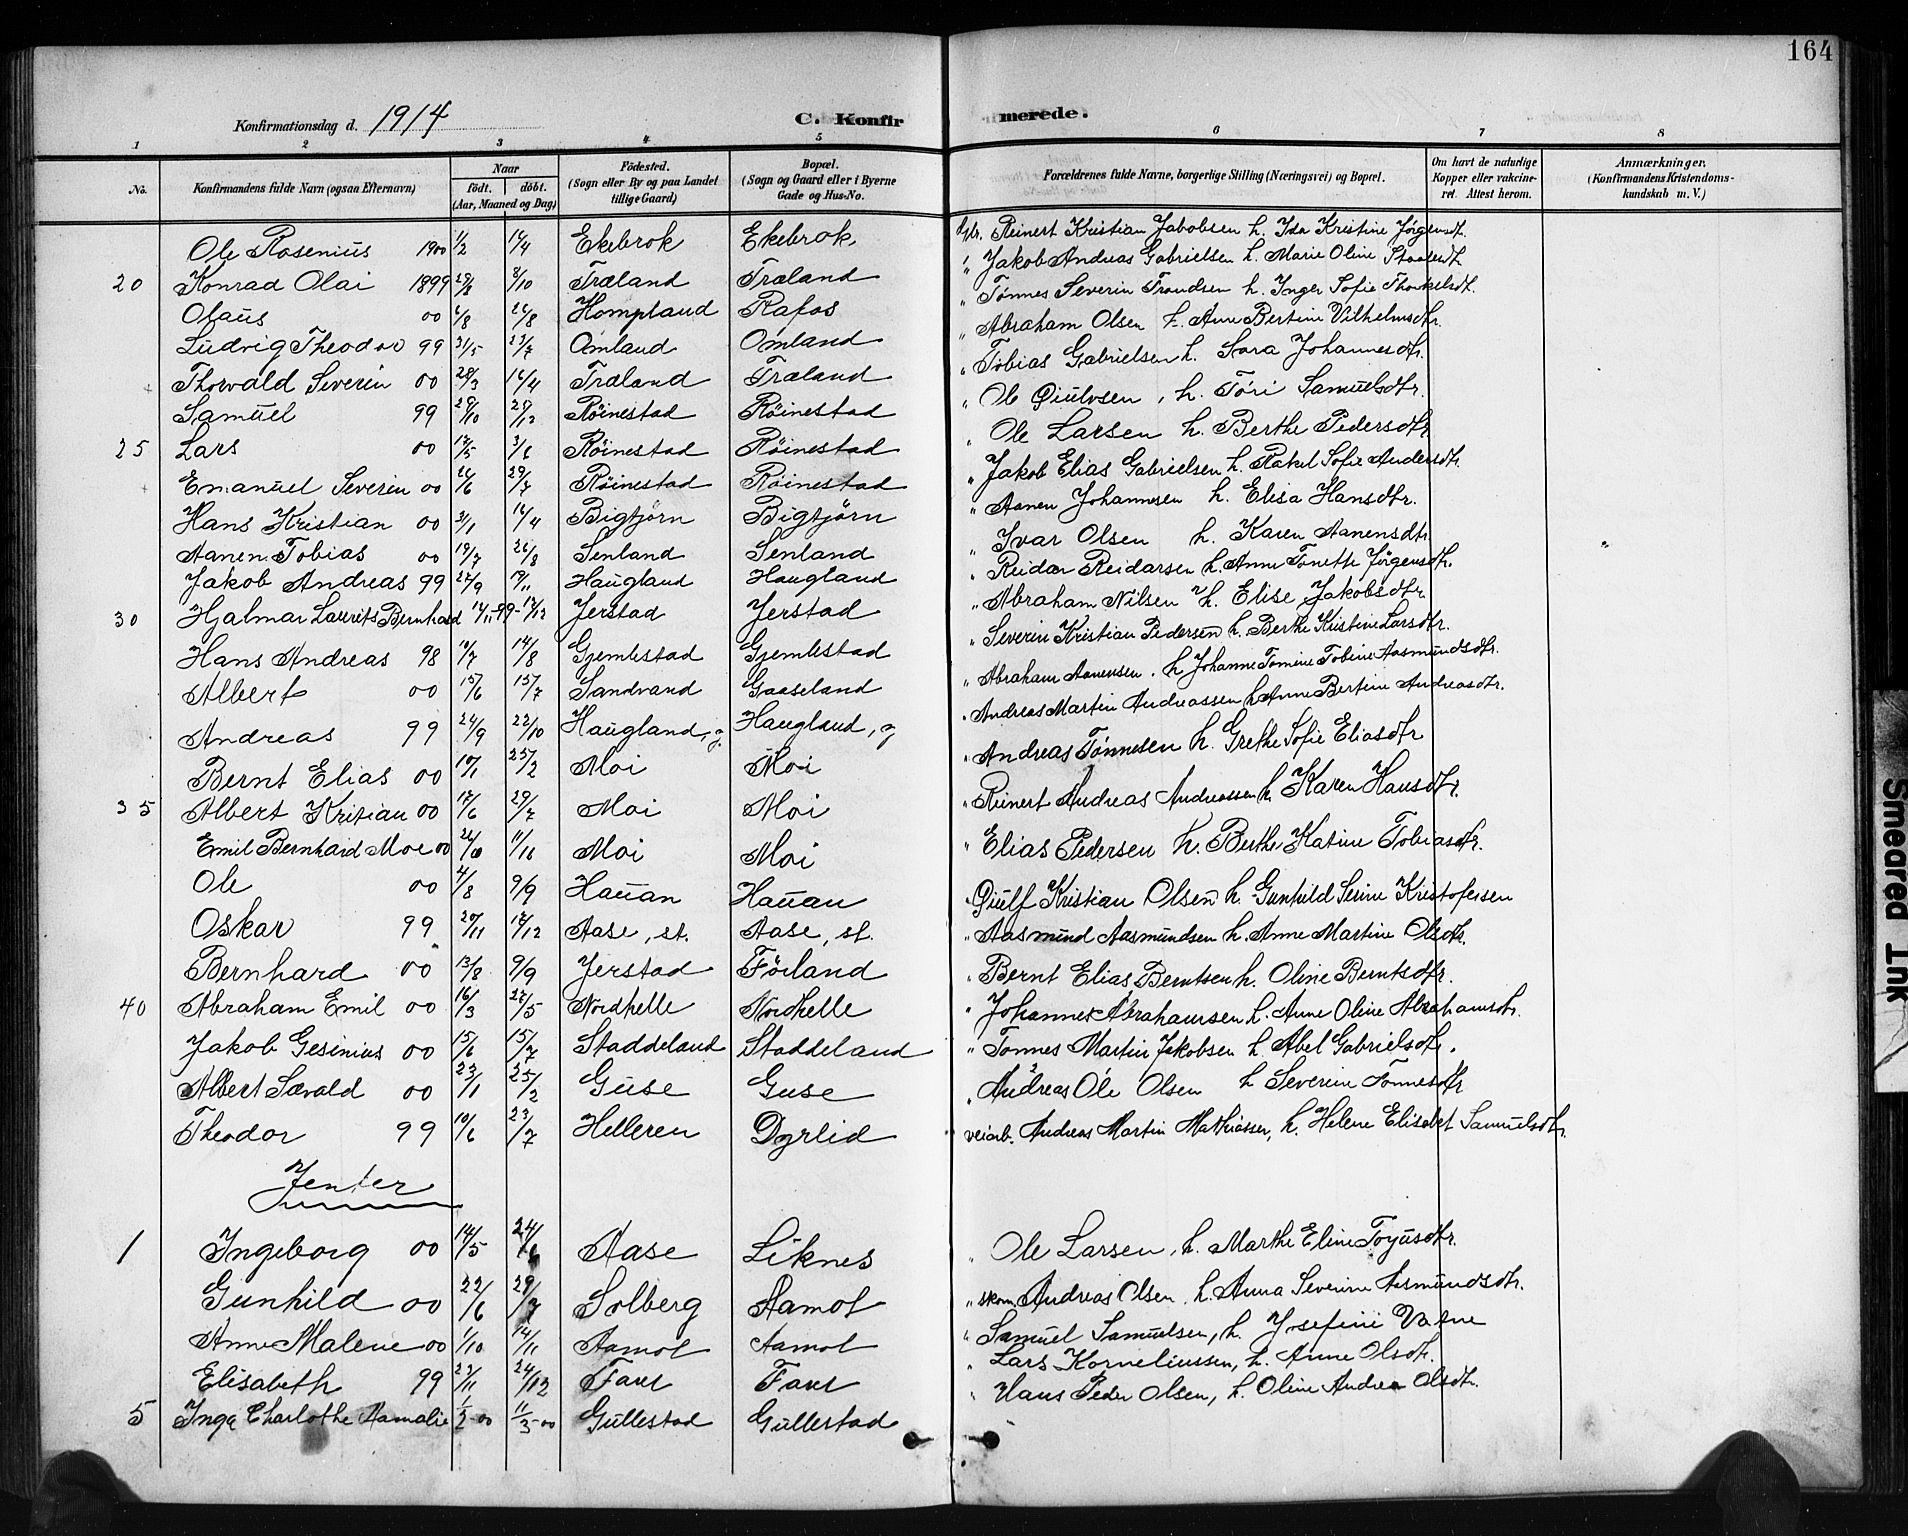 164
Konfirmationsdag d. 1914 C. Konfirmerede.
1 2 3 4 5 6 7 8
No. Konfirmandens fulde Navn (ogsaa Efternavn) Naar født. døbt. (Aar, Maaned og Dag) Fødested. (Sogn eller By og paa Landet tillige Gaard) Bopæl. (Sogn og Gaard eller i Byerne Gade og Hus-No. Forældrenes fulde Navne, borgerlige Stilling (Næringsvei) og Bopæl. Om havt de naturlige Kopper eller vakcineret. Attest herom. Anmærkninger. (Konfirmandens Kristendomskundskab m. V.)
Ole Rosenius 1900 11/2 16/4 Ekebrok Ekebrok Reinert Kristian Jakobsen h. Ida Kristine Jørgensdt.
20 Konrad Olai 1899 29/8 8/10 Træland Træland " Jakob Andreas Gabrielsen h. Marie Oline
Olaus 00 6/8 26/8 Hompland Rafos " Tønnes Severin Trondsen h. Inger Sofie Thorkelsdt.
Ludvig Theodor 99 31/5 23/7 Omland Omland " Abraham Olsen h. Ane Bertine Vilhelmsdtr.
Thorvald Severin 00 28/3 16/4 Træland Træland " Tobias Gabrielsen h. Sara Johannesdtr.
Samuel 99 29/10 27/12 Røinestad Røinestad " Ole Øiulvsen, h. Tøri Samuelsdtr.
25 Lars 00 12/5 3/6 Røinestad Røinestad " Ole Larsen h. Berthe Pedersdtr
Emanuel Severin 00 26/6 29/7 Røinestad Røinestad " Jakob Elias Gabrielsen h. Rakel Sofie Andersdtr.
Hans Kristian 00 31/1 16/4 Bigtjørn Bigtjørn " Aanen Johannesen h. Elisa Hansdtr.
Aanen Tobias 00 19/7 26/8 Senland Senland " Ivar Olsen h. Karen Aanensdtr. "
Jakob Andreas 99 27/9 19/11 Haugland Haugland " Reidar Reidarsen h. Anne Tonette Jørgensdtr.
30 Hjalmar Laurits Bernhard 12/11-99 - 17/12 Jerstad Jerstad " Abraham Nilsen h. Elise Jakobsdtr
Hans Andreas 98 10/7 14/8 Gjemlestad Gjemlestad " Severin Kristian Pedersen h. Berthe Kristine Larsdtr.
Albert 00 15/6 15/7 Sandvand Gaaseland " Abraham Aanensen. h. Johanne Tomine Tobine Aasmundsdtr.
Andreas 99 24/9 22/10 Haugland, g. Haugland, g " Andreas Martin Andreassen h. Anne Bertine Andreasdtr.
Bernt Elias 00 10/1 25/2 Moi Moi " Andreas Tønnesen h. Grethe Sofie Eliasdtr
35 Albert Kristian 00 17/6 29/7 Moi Moi " Reinert Andreas Andreassen h. Karen Hansdtr.
Emil Bernhard Moe 00 Moi Moi " Elias Pedersen h. Berthe Katine Tobiasdtr.
Ole 00 4/8 9/9 Hauan Hauan " Øiulf Kristian Olsen h. Gunhild Serine Kristofersen
Oskar 99 20/11 17/12 Aase, st. Aase, st. " Aasmund Aasmundsen h. Anne Martine Olsdtr.
Bernhard 00 13/8 9/9 Jerstad Føiland " Bernt Elias Berntsen h. Oline Berntsdtr.
40 Abraham Emil 00 16/3 27/5 Nordhelle Nordhelle " Johannes Abrahamsen h. Anne Oline Abrahamsdtr.
Jakob Gesinius 00 15/6 15/7 Staddeland Staddeland " Tønnes Martin Jakobsen h. Abel Gabrielsdtr.
Albert Sævald 00 23/1 25/2 Guse Guse " Andreas Ole Olsen h Severine Tønnesdtr
Theodor 99 10/6 23/7 Helleren Dyrlid veiarb. Andreas Martin Mathiassen, h. Helene Elisabet Samuelsdtr.
Jenter
1 Ingeborg 00 14/5 24/6 Aase Liknes " Ole Larsen, h. Marthe Eline Tojusdtr.
Gunhild 00 22/6 29/7 Solberg Aamot " skom. Andreas Olsen, h. Anna Severine Aasmundsdtr.
Anne Malene 00 1/10 14/11 Aamot Aamot " Samuel Samuelsen, h. Josefine
Elisabeth 99 23/11 24/12 Faret Faret " Lars Korneliussen, h. Anne Olsdtr.
5 Inga Charlothe Aamalie 1/2-00 11/3-00 Gullestad Gullestad " Hans Peder Olsen, h. Oline Andrea Olsdtr.
Smeared Ink